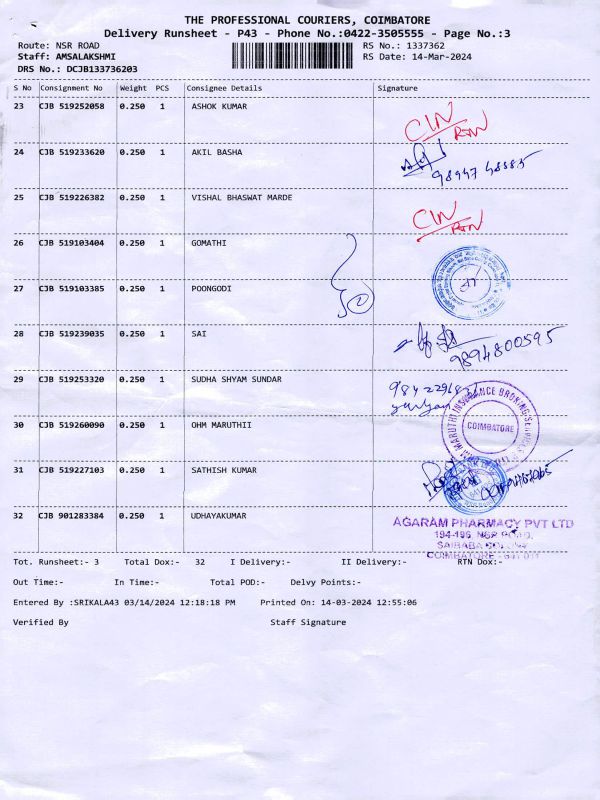 THE PROFESSIONAL COURIERS, COIMBATORE
Delivery Runsheet - P43 - Phone No.:0422-3505555 - Page No.:3
Route: NSR ROAD RS No.: 1337362
Staff: AMSALAKSHMI RS Date: 14-Mar-2024
DRS No.: DCJB133736203
S No Consignment No Weight PCS Consignee Details Signature
23 CJB 519252058 0.250 1 ASHOK KUMAR
RTN
24 CJB 519233620 0.250 1 AKIL BASHA
25 CJB 519226382 0.250 1 VISHAL BHASWAT MARDE
RTN
26 CJB 519103404 0.250 1 GOMATHI
27 CJB 519103385 0.250 1 POONGODI
28 CJB 519239035 0.250 1 SAI
9894800595
29 CJB 519253320 0.250 1 SUDHA SHYAM SUNDAR
30 CJB 519260090 0.250 1 OHM MARUTHII
MARUTHI INSURANCE BROKING SERVICES
COIMBATORE
31 CJB 519227103 0.250 1 SATHISH KUMAR
32 CJB 901283384 0.250 1 UDHAYAKUMAR
AGARAM PHARMACY PVT LTD
194-196, NSR ROAD,
SAIBABA COLONY
COIMBATORE - 641 011
Tot. Runsheet:- 3 Total Dox:- 32 I Delivery:- II Delivery:- RTN Dox:-
Out Time:- In Time:- Total POD:- Delvy Points:-
Entered By :SRIKALA43 03/14/2024 12:18:18 PM Printed On: 14-03-2024 12:55:06
Verified By Staff Signature